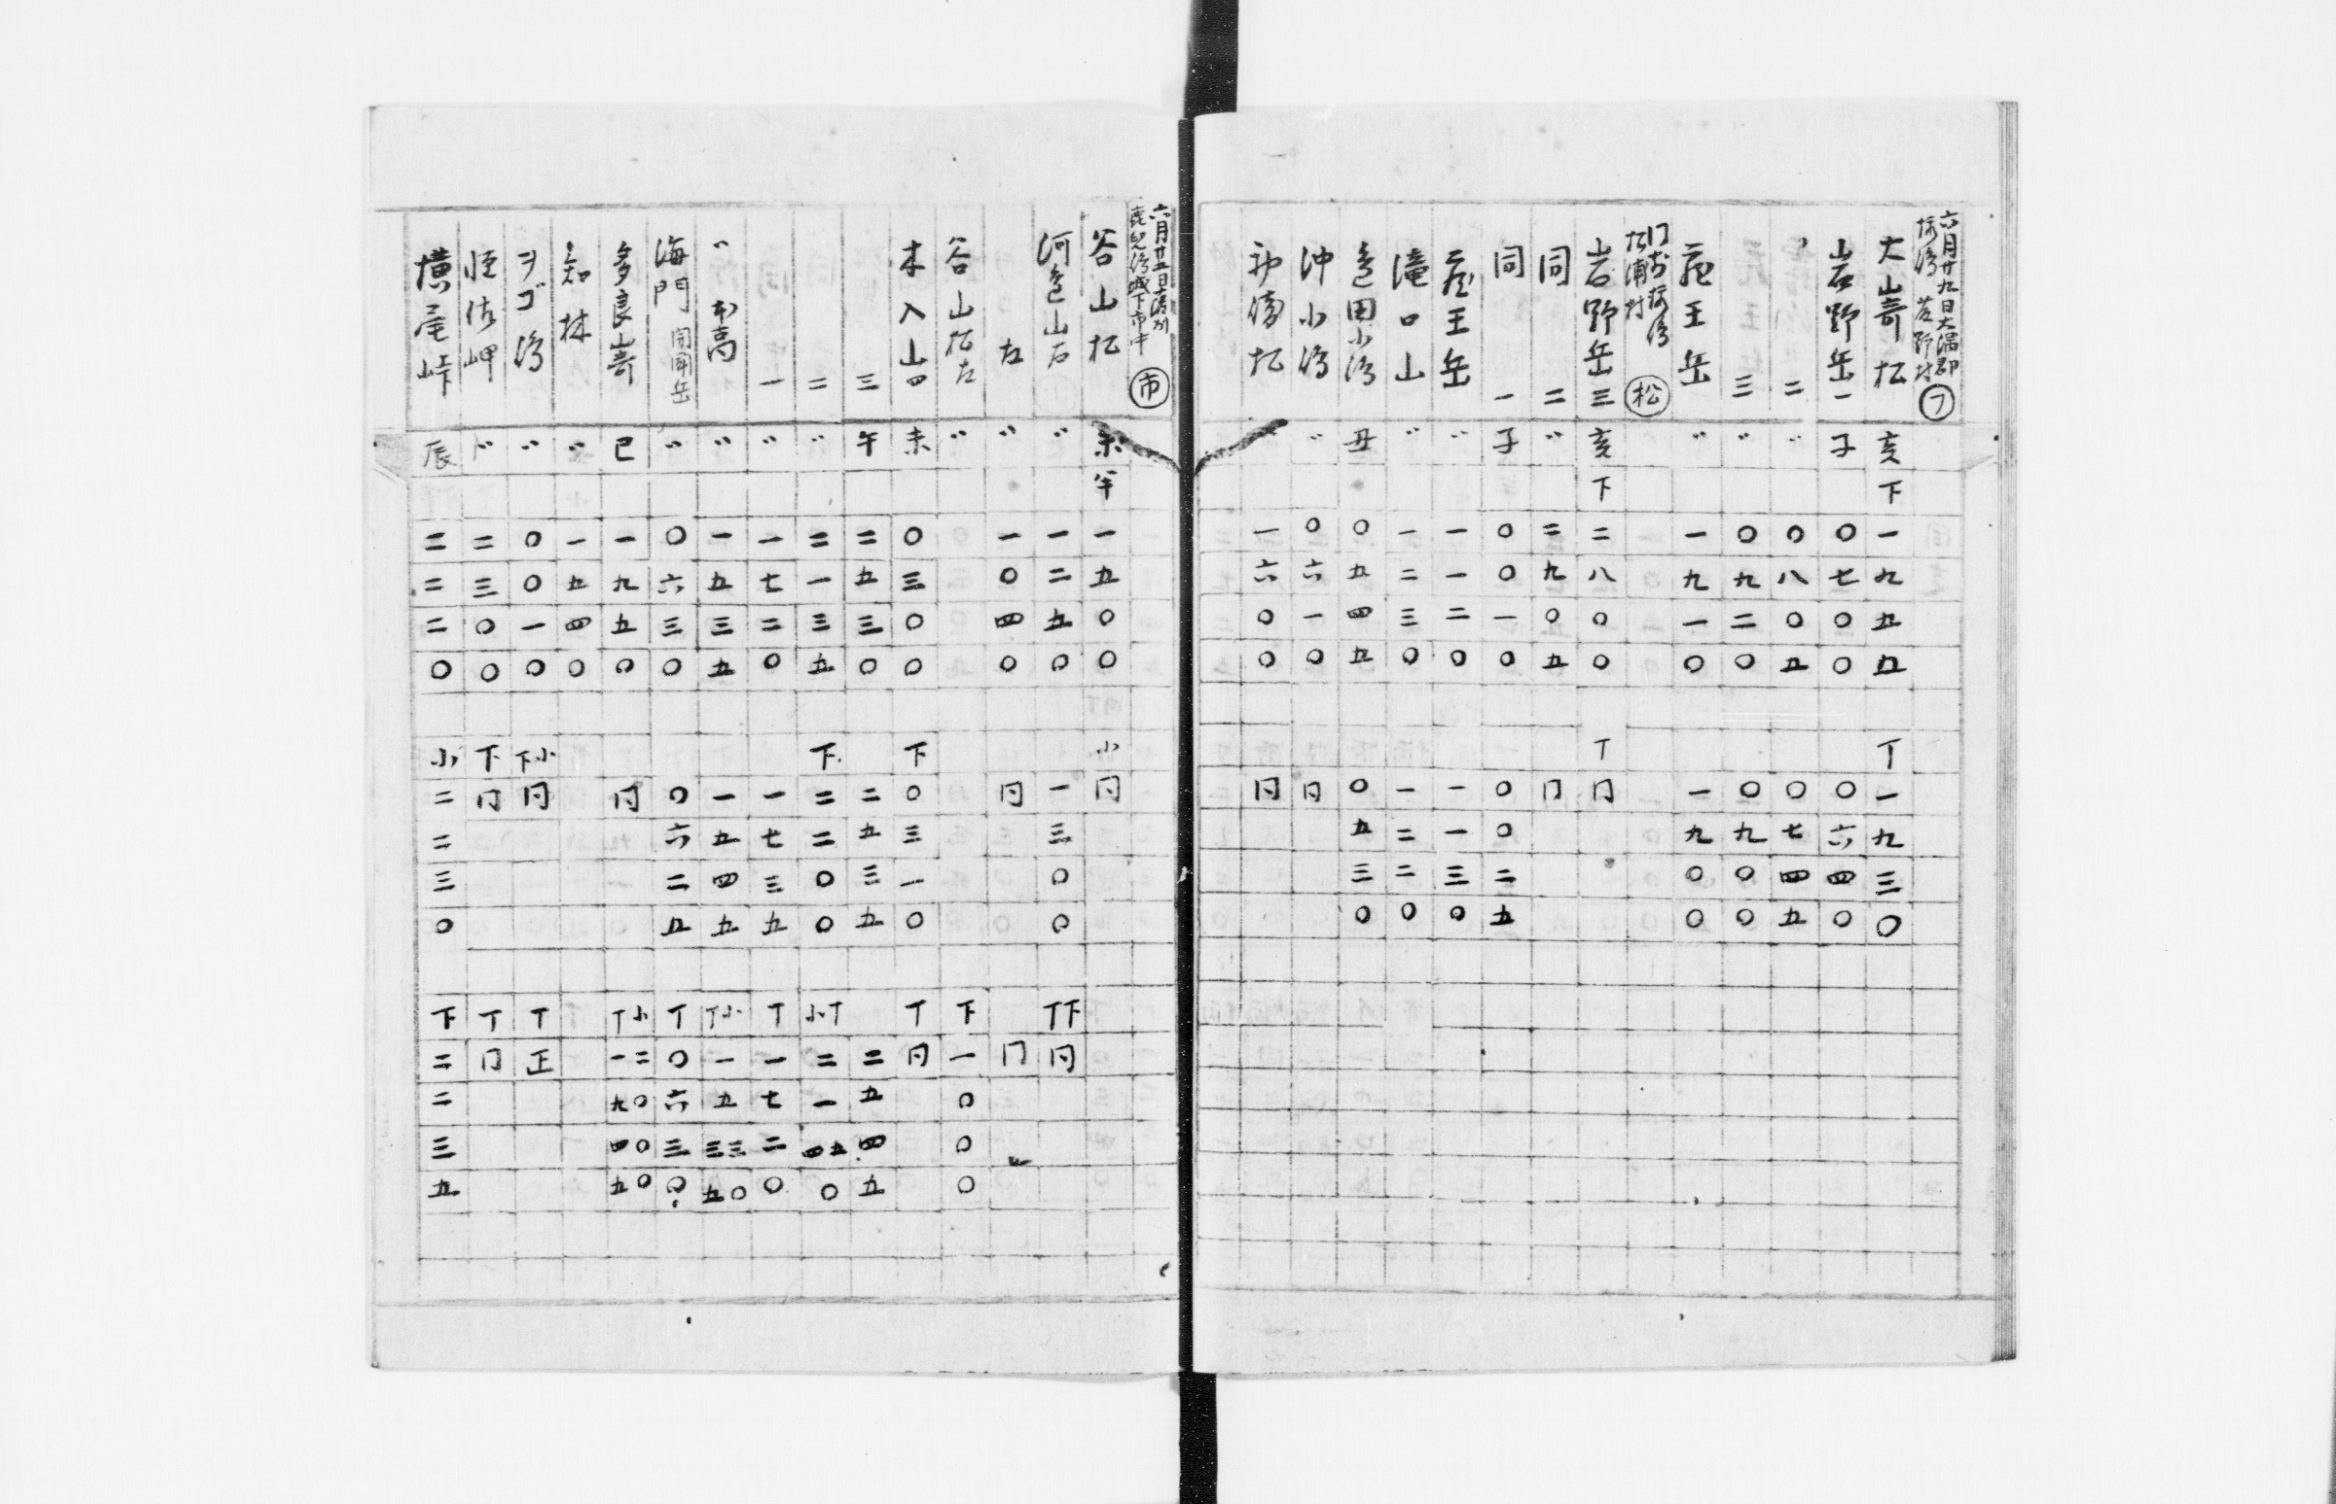 六月廿九日大隅郡
桜湾 野村 フ
大山嵜松 亥下 一九五五 丁 一九三〇
岩野岳一 子 〇七〇〇 〇六四〇
二 〃 〇八〇五 〇七四五
三 〃 〇九二〇 〇九〇〇
王岳 〃 一九一〇 一九〇〇
松浦村 松
岩野岳三 亥下 二八〇〇 丁 同
同 二 〃 二九〇五 同
同 一 子 〇〇一〇 〇〇二五
王岳 〃 一一二〇 一一三〇
滝口山 〃 一二三〇 一二二〇
田小湾 丑 〇五四五 〇五三〇
沖小湾 〃 〇六一〇 同
松 〃 一六〇〇 同
六月廿
城下市中 市
谷山松 未午 一五〇〇 小 同
河 山右 〃 一二五〇 一三〇〇 丁下 同
左 〃 一〇四〇 同 同
谷山松左 〃 下 一〇〇〇
木入山 未 〇三〇〇 下 〇三一〇 丁 同
三 午 二五三〇 二五三五 二五四五
二 〃 二一三五 下 二二〇〇 小丁 二一四五〇
一 〃 一七二〇 一七三五 丁 一七二〇
〃 高 〃 一五三五 一五四五 丁小 一五三三五〇
海門 開聞岳 〃 〇六三〇 〇六二五 丁 〇六三〇
多良山嵜 巳 一九五〇 同 丁小 一二九〇四〇五〇
知林 〃 一五四〇
ヲゴ湾 〃 〇〇一〇 下小 同 丁 正
佐岬 〃 二三〇〇 下 同 丁 同
横尾峠 辰 二二二〇 小 二二三〇 下 二二三五